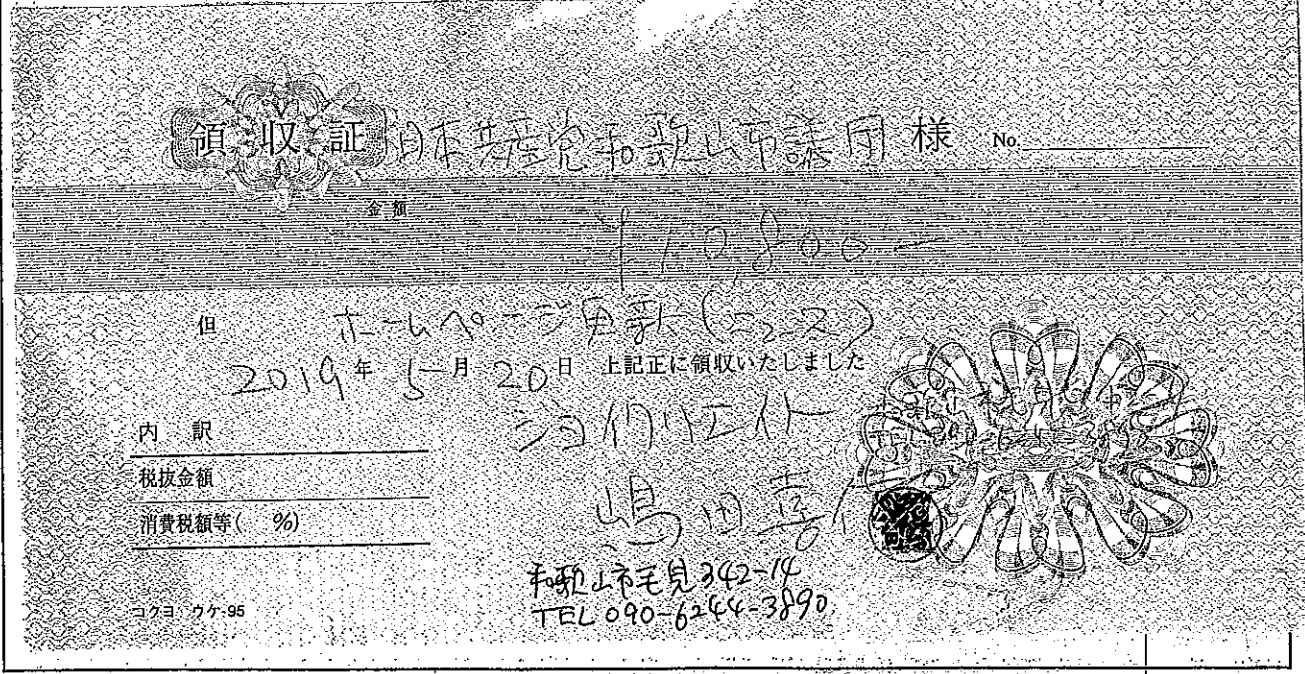 領収証 日本共産党和歌山市議団 様 No.
金額
¥10,800-
但 ホームページ更新(ニュース)
2019年 5月 20日 上記正に領収いたしました
ジョイクリエイト
内 訳
税抜金額
嶋田喜
消費税額等( %)
和歌山市毛見342-14
TEL 090-6244-3890
コクヨ ウケ-95